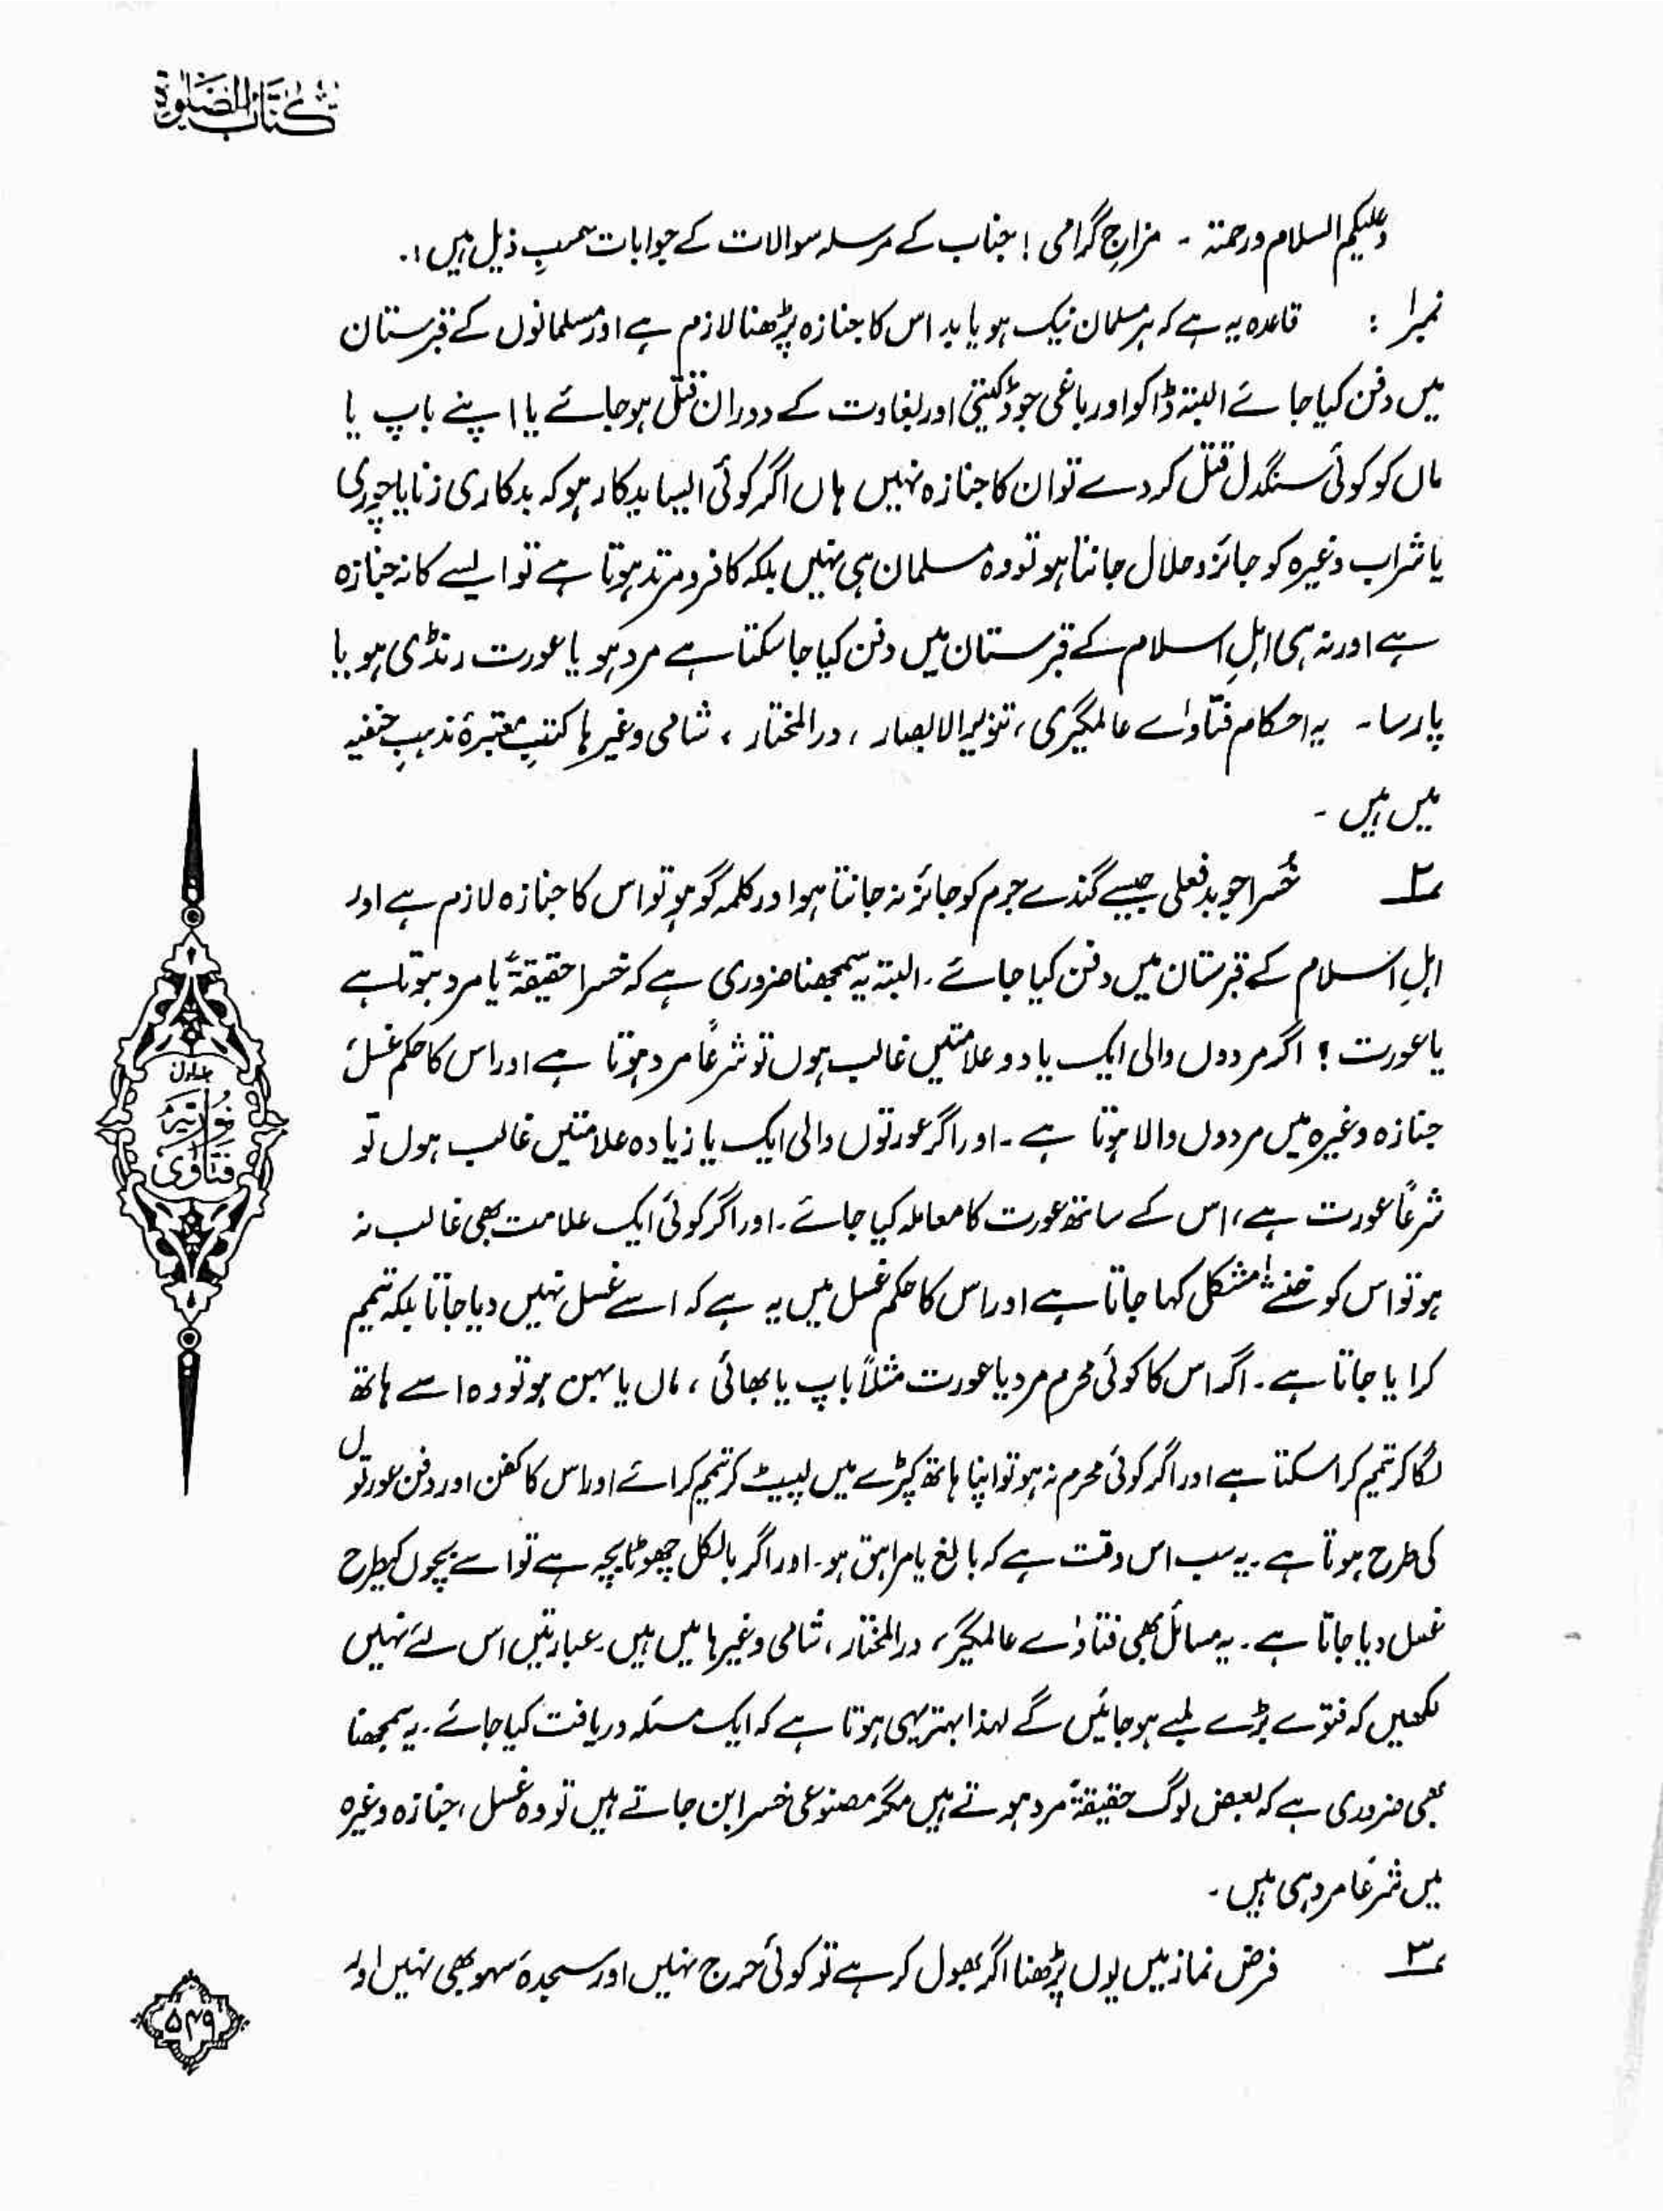 کتاب الصلوٰۃ
وعلیکم السلام ورحمۃ ۔ مزاجِ گرامی ! جناب کے مرسلہ سوالات کے جوابات حسبِ ذیل ہیں :۔
نمبر۱ : قاعدہ یہ ہے کہ ہر مسلمان نیک ہو یا بد اس کا جنازہ پڑھنا لازم ہے اور مسلمانوں کے قبرستان
میں دفن کیا جائے البتہ ڈاکو اور باغی جو ڈکیتی اور بغاوت کے دوران قتل ہو جائے یا اپنے باپ یا
ماں کو کوئی سنگدل قتل کر دے تو ان کا جنازہ نہیں ہاں اگر کوئی ایسا بدکار ہو کہ بدکاری زنا یا چوری
یا شراب وغیرہ کو جائز و حلال جانتا ہو تو وہ مسلمان ہی نہیں بلکہ کافر و مرتد ہوتا ہے تو ایسے کا نہ جنازہ
ہے اور نہ ہی اہلِ اسلام کے قبرستان میں دفن کیا جا سکتا ہے مرد ہو یا عورت رنڈی ہو یا
پارسا ۔ یہ احکام فتاوٰے عالمگیری ، تنویر الابصار ، در المختار ، شامی وغیرہا کتبِ معتبرۂ مذہبِ حنفیہ
میں ہیں ۔
۲ خُسرا جو بدفعلی جیسے گندے جرم کو جائز نہ جانتا ہو اور کلمہ گو ہو تو اس کا جنازہ لازم ہے اور
اہلِ اسلام کے قبرستان میں دفن کیا جائے ۔ البتہ یہ سمجھنا ضروری ہے کہ خسرا حقیقۃً یا مرد ہوتا ہے
یا عورت ؟ اگر مردوں والی ایک یا دو علامتیں غالب ہوں تو شرعاً مرد ہوتا ہے اور اس کا حکم غسل
جنازہ وغیرہ میں مردوں والا ہوتا ہے ۔ اور اگر عورتوں والی ایک یا زیادہ علامتیں غالب ہوں تو
شرعاً عورت ہے ، اس کے ساتھ عورت کا معاملہ کیا جائے ۔ اور اگر کوئی ایک علامت بھی غالب نہ
ہو تو اس کو خنثیٰ مشکل کہا جاتا ہے اور اس کا حکم غسل میں یہ ہے کہ اسے غسل نہیں دیا جاتا بلکہ تیمم
کرایا جاتا ہے ۔ اگر اس کا کوئی محرم مرد یا عورت مثلاً باپ یا بھائی ، ماں یا بہن ہو تو وہ اسے ہاتھ
لگا کر تیمم کرا سکتا ہے اور اگر کوئی محرم نہ ہو تو اپنا ہاتھ کپڑے میں لپیٹ کر تیمم کرائے اور اس کا کفن اور دفن عورتوں
کی طرح ہوتا ہے ۔ یہ سب اس وقت ہے کہ بالغ یا مراہق ہو ۔ اور اگر بالکل چھوٹا بچہ ہے تو اسے بچوں کیطرح
غسل دیا جاتا ہے ۔ یہ مسائل بھی فتاوٰے عالمگیر ، در المختار ، شامی وغیرہا میں ہیں ۔ عبارتیں اس لئے نہیں
لکھیں کہ فتوے بڑے لمبے ہو جائیں گے لہذا بہتر یہی ہوتا ہے کہ ایک مسئلہ دریافت کیا جائے ۔ یہ سمجھنا
بھی ضروری ہے کہ بعض لوگ حقیقۃً مرد ہوتے ہیں مگر مصنوعی خسرا بن جاتے ہیں تو وہ غسل ، جنازہ وغیرہ
میں شرعًا مرد ہی ہیں ۔
۳ فرض نماز میں یوں پڑھنا اگر بھول کر ہے تو کوئی حرج نہیں اور سجدہ سہو بھی نہیں اور
جلد اول
نوریہ
فتاوٰی
۵۴۹